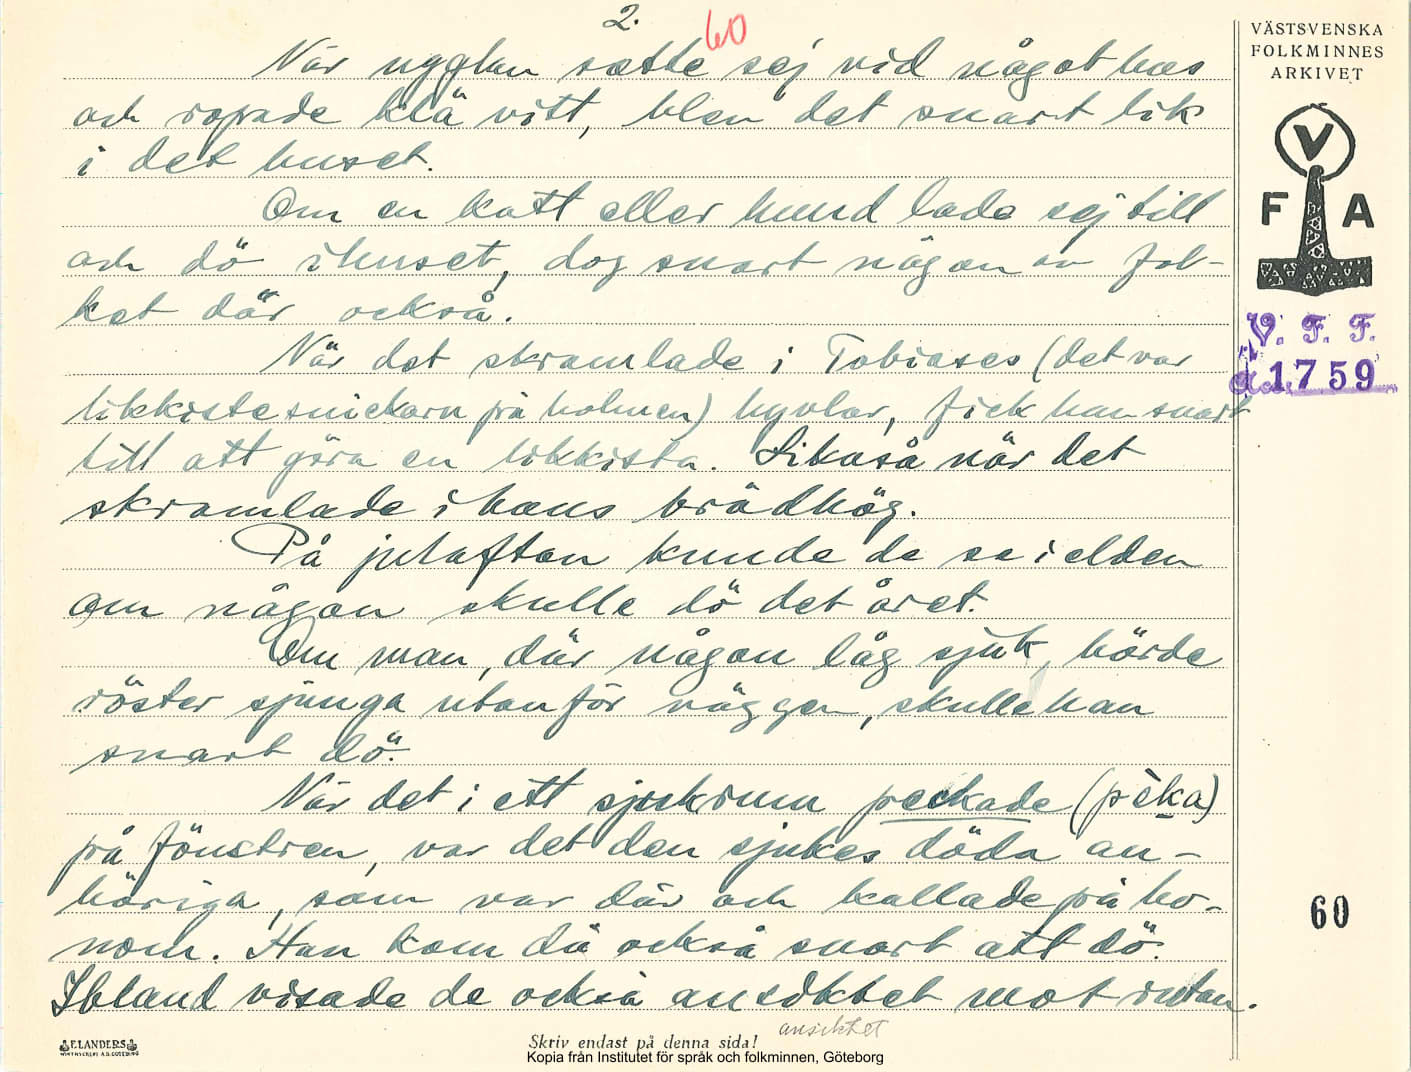 2.
60
När ugglan satte sej vid något hus
och ropade klä vitt, blev det snart lik
i det huset.
Om en katt eller hund lade sej till
och dö i huset, dog snart någon av fol-
ket där också.
När det skramlade i Tobiases (det var
likkistesnickarn på holmen) hyvlar, fick han snart
till att göra en likkista. Likaså när det
skramlade i hans brädhög.
På julaftan kunde de se i elden
om någon skulle dö det året.
Om man, där någon låg sjuk, hörde
röster sjunga utanför väggen, skulle han
snart dö.
När det i ett sjukrum peckade (pèka)
på fönstren, var det den sjukes döda an-
höriga, som var där och kallade på ho-
nom. Han kom då också snart att dö.
Ibland visade de också ansiktet mot rutan.
ansiktet
Skriv endast på denna sida!
Kopia från Institutet för språk och folkminnen, Göteborg
ELANDERS
VÄSTSVENSKA
FOLKMINNES
ARKIVET
V
F A
V. F. F.
1759
60